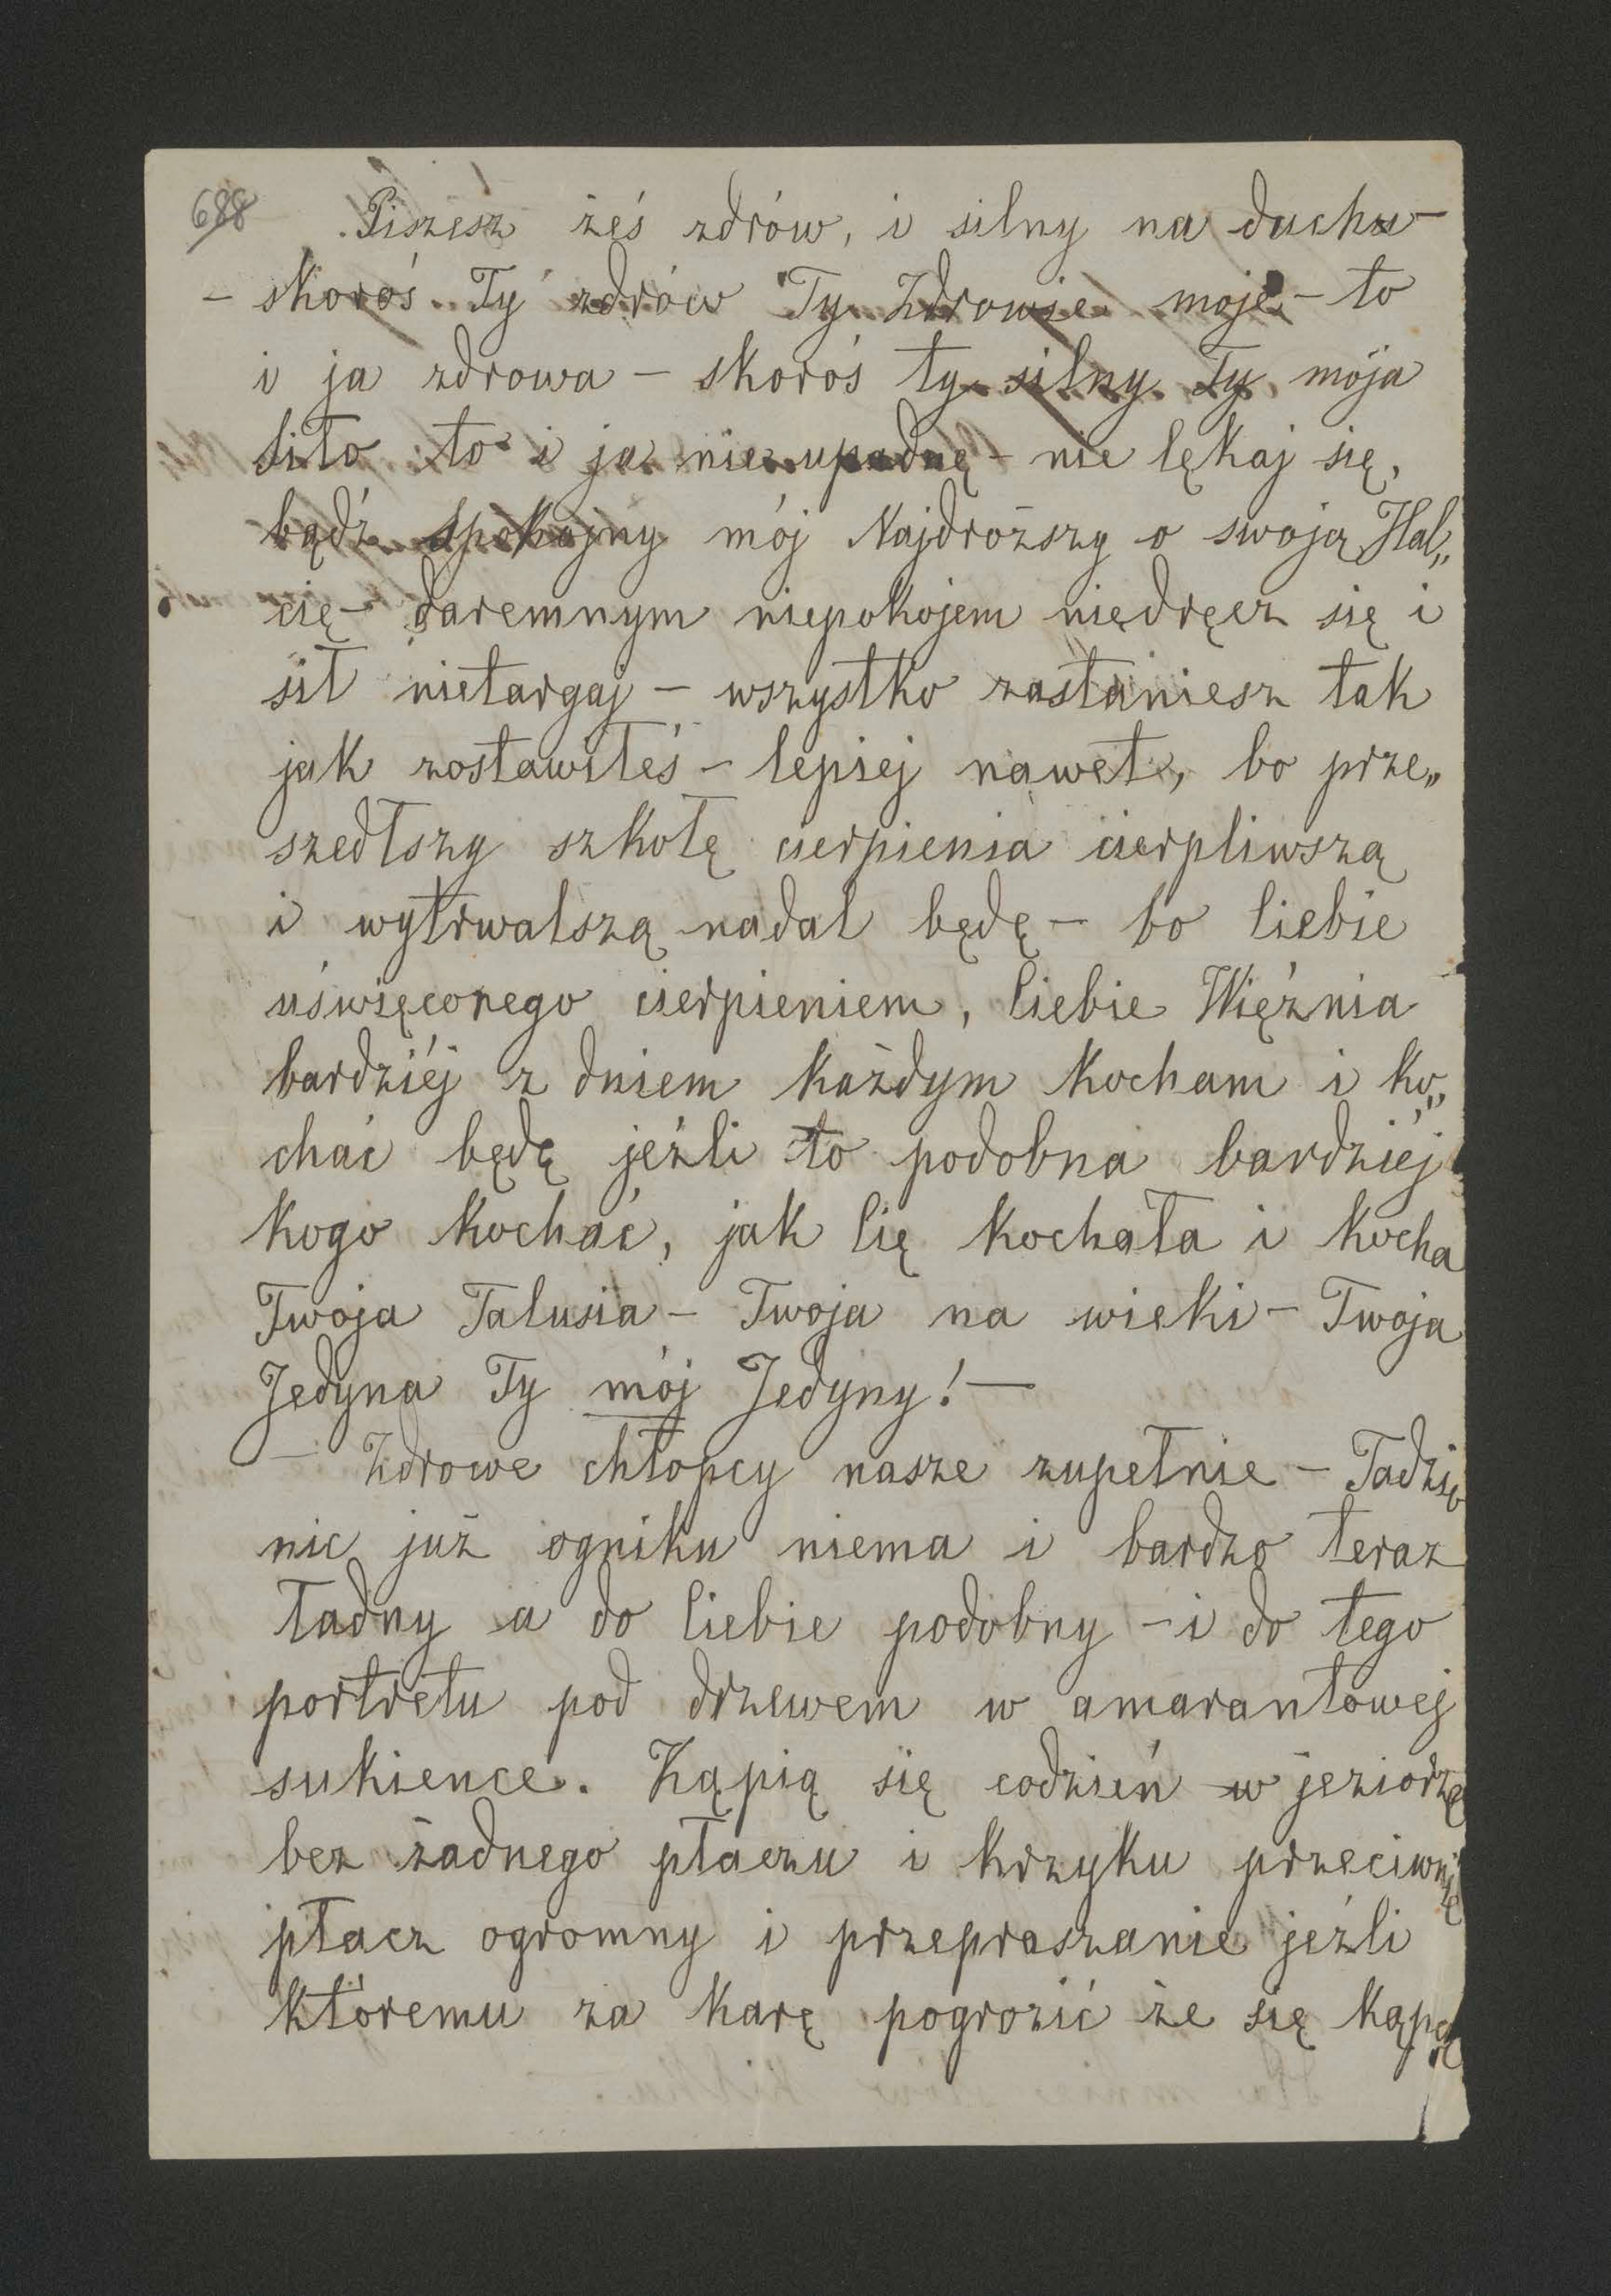 688 Piszesz żeś zdrów, i silny na duchu –
– skoroś Ty zdrów Ty Zdrowie moje – to
i ja zdrowa – skoroś ty silny Ty moja
siło to i ja nie upadnę – nie lękaj się,
bądź spokojny mój Najdroższy o swoją Hal„
cię – daremnym niepokojem niedręcz się i
sił nietargaj – wszystko zastaniesz tak
jak zostawiłeś – lepiej nawet, bo prze„
szedłszy szkołę cierpienia cierpliwszą
i wytrwalszą nadal będę – bo Ciebie
uświęconego cierpieniem, Ciebie Więźnia
bardziéj z dniem każdym kocham i ko„
chać będę jeźli to podobna bardziéj
kogo kochać, jak Cię kochała i kocha
Twoja Talusia – Twoja na wieki – Twoja
Jedyna Ty mój Jedyny! –
– Zdrowe chłopcy nasze zupełnie – Tadzio
nic już ogniku niema i bardzo teraz
ładny a do Ciebie podobny – i do tego
portretu pod drzewem w amarantowej
sukience. Kąpią się codzień w jeziorze
bez żadnego płaczu i krzyku przeciwnie
płacz ogromny i przepraszanie jeźli
któremu za karę pogrozić że się kąpać